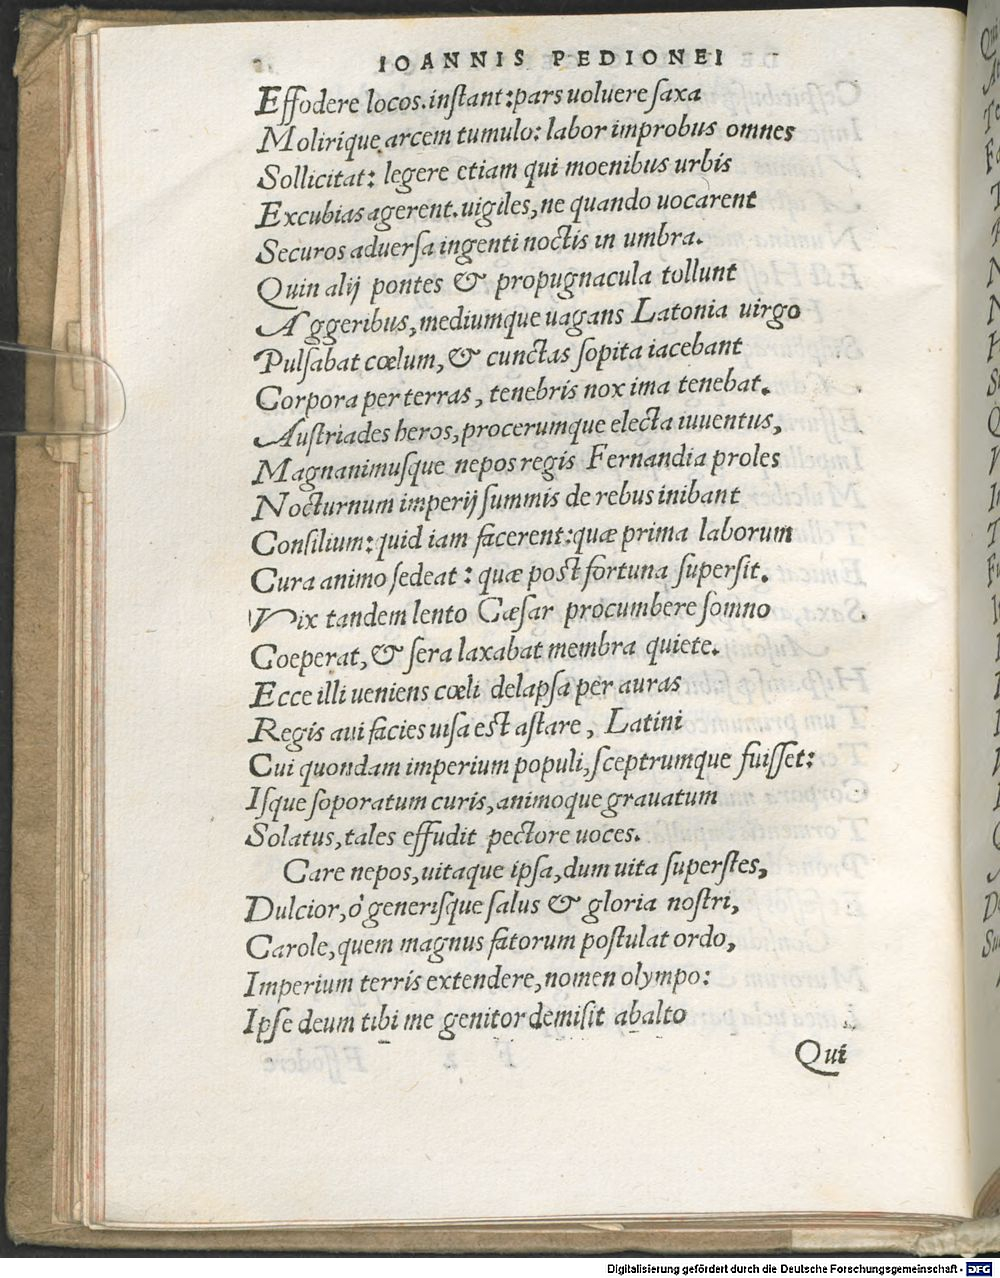 IOANNIS PEDIONEI
Effodere locos. instant: pars uoluere saxa
Molirique arcem tumulo: labor improbus omnes
Sollicitat: legere etiam qui moenibus urbis
Excubias agerent. uigiles, ne quando uocarent
Securos aduersa ingenti noctis in umbra.
Quin alij pontes & propugnacula tollunt
Aggeribus, mediumque uagans Latonia uirgo
Pulsabat cœlum, & cunctas sopita iacebant
Corpora per terras, tenebris nox ima tenebat.
Austriades heros, procerumque electa iuuentus,
Magnanimusque nepos regis Fernandia proles
Nocturnum imperij summis de rebus inibant
Consilium: quid iam facerent: quæ prima laborum
Cura animo sedeat: quæ post fortuna supersit.
Vix tandem lento Cæsar procumbere somno
Coeperat, & sera laxabat membra quiete.
Ecce illi ueniens cœli delapsa per auras
Regis aui facies uisa est astare, Latini
Cui quondam imperium populi, sceptrumque fuisset:
Isque soporatum curis, animoque grauatum
Solatus, tales effudit pectore uoces.
Care nepos, uitaque ipsa, dum uita superstes,
Dulcior, ò generisque salus & gloria nostri,
Carole, quem magnus fatorum postulat ordo,
Imperium terris extendere, nomen olympo:
Ipse deum tibi me genitor demisit ab alto
Qui
Digitalisierung gefördert durch die Deutsche Forschungsgemeinschaft - DFG